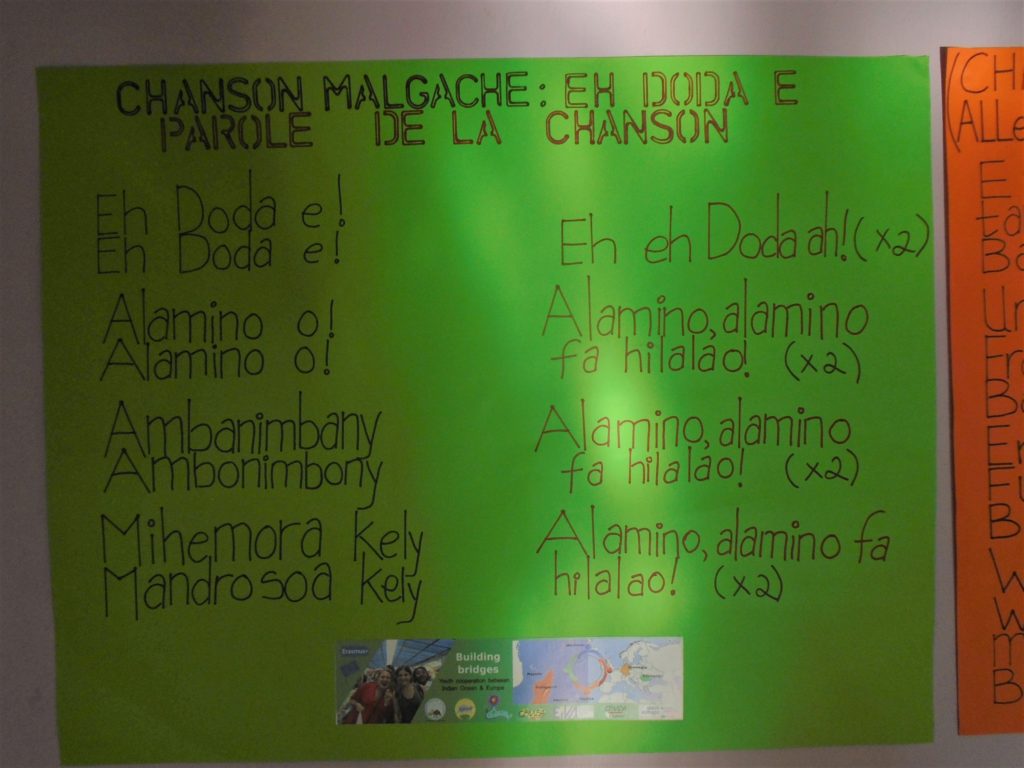 CHANSON MALGACHE: EH DODA E
PAROLE DE LA CHANSON
Eh Doda e!
Eh Doda e!
Alamino o!
Alamino o!
Ambanimbany
Ambonimbony
Mihemora kely
Mandrosoa kely
Eh eh Doda ah! (x2)
Alamino, alamino
fa hilalao! (x2)
Alamino, alamino
fa hilalao! (x2)
Alamino, alamino fa
hilalao! (x2)
Erasmus+
Building
bridges
Youth cooperation between
Indian Ocean & Europe
(CH
ALLe
E
ta
Ba
Un
Fr
B
En
Fu
B
W
W
m
B